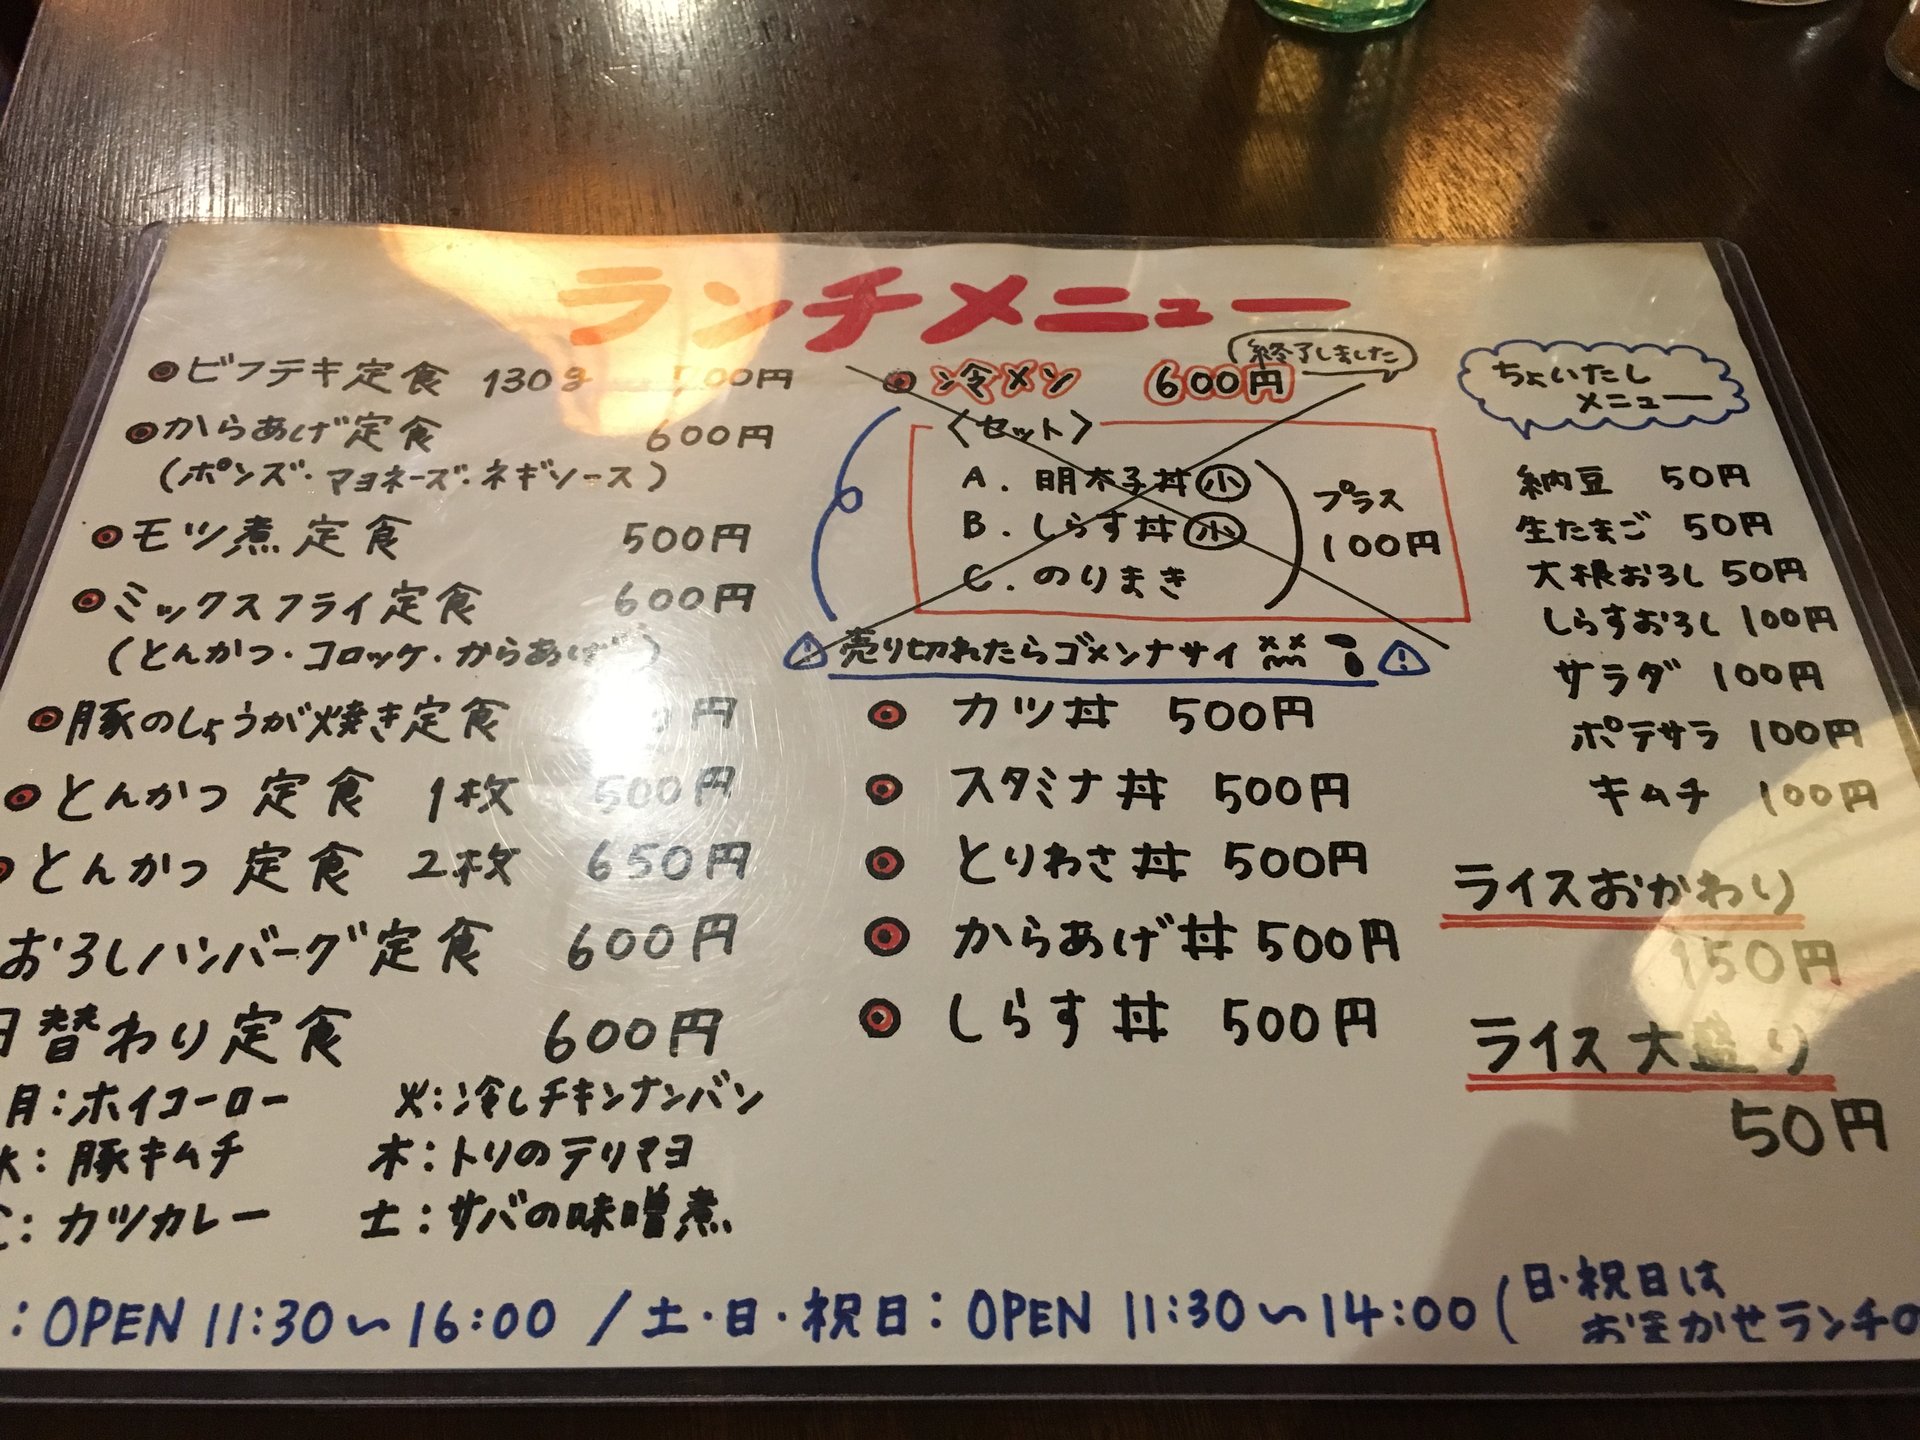 ランチメニュー
ビフテキ定食 130g 円
からあげ定食 600円
(ポンズ・マヨネーズ・ネギソース)
モツ煮定食 500円
ミックスフライ定食 600円
(とんかつ・コロッケ・からあげ)
豚のしょうが焼き定食 円
とんかつ定食 1枚 500円
とんかつ定食 2枚 650円
おろしハンバーグ定食 600円
日替わり定食 600円
月:ホイコーロー 火:冷しチキンナンバン
水:豚キムチ 木:トリのテリマヨ
カツカレー 土:サバの味噌煮
冷メン 600円
終了しました
〈セット〉
A. 明太子丼 小
B. しらす丼 小
C. のりまき
プラス
100円
売り切れたらゴメンナサイ
カツ丼 500円
スタミナ丼 500円
とりわさ丼 500円
からあげ丼 500円
しらす丼 500円
ちょいたし
メニュー
納豆 50円
生たまご 50円
大根おろし 50円
しらすおろし 100円
サラダ 100円
ポテサラ 100円
キムチ 100円
ライスおかわり
150円
ライス大盛り
50円
:OPEN 11:30〜16:00 / 土・日・祝日:OPEN 11:30〜14:00 (日・祝日は
おまかせランチの